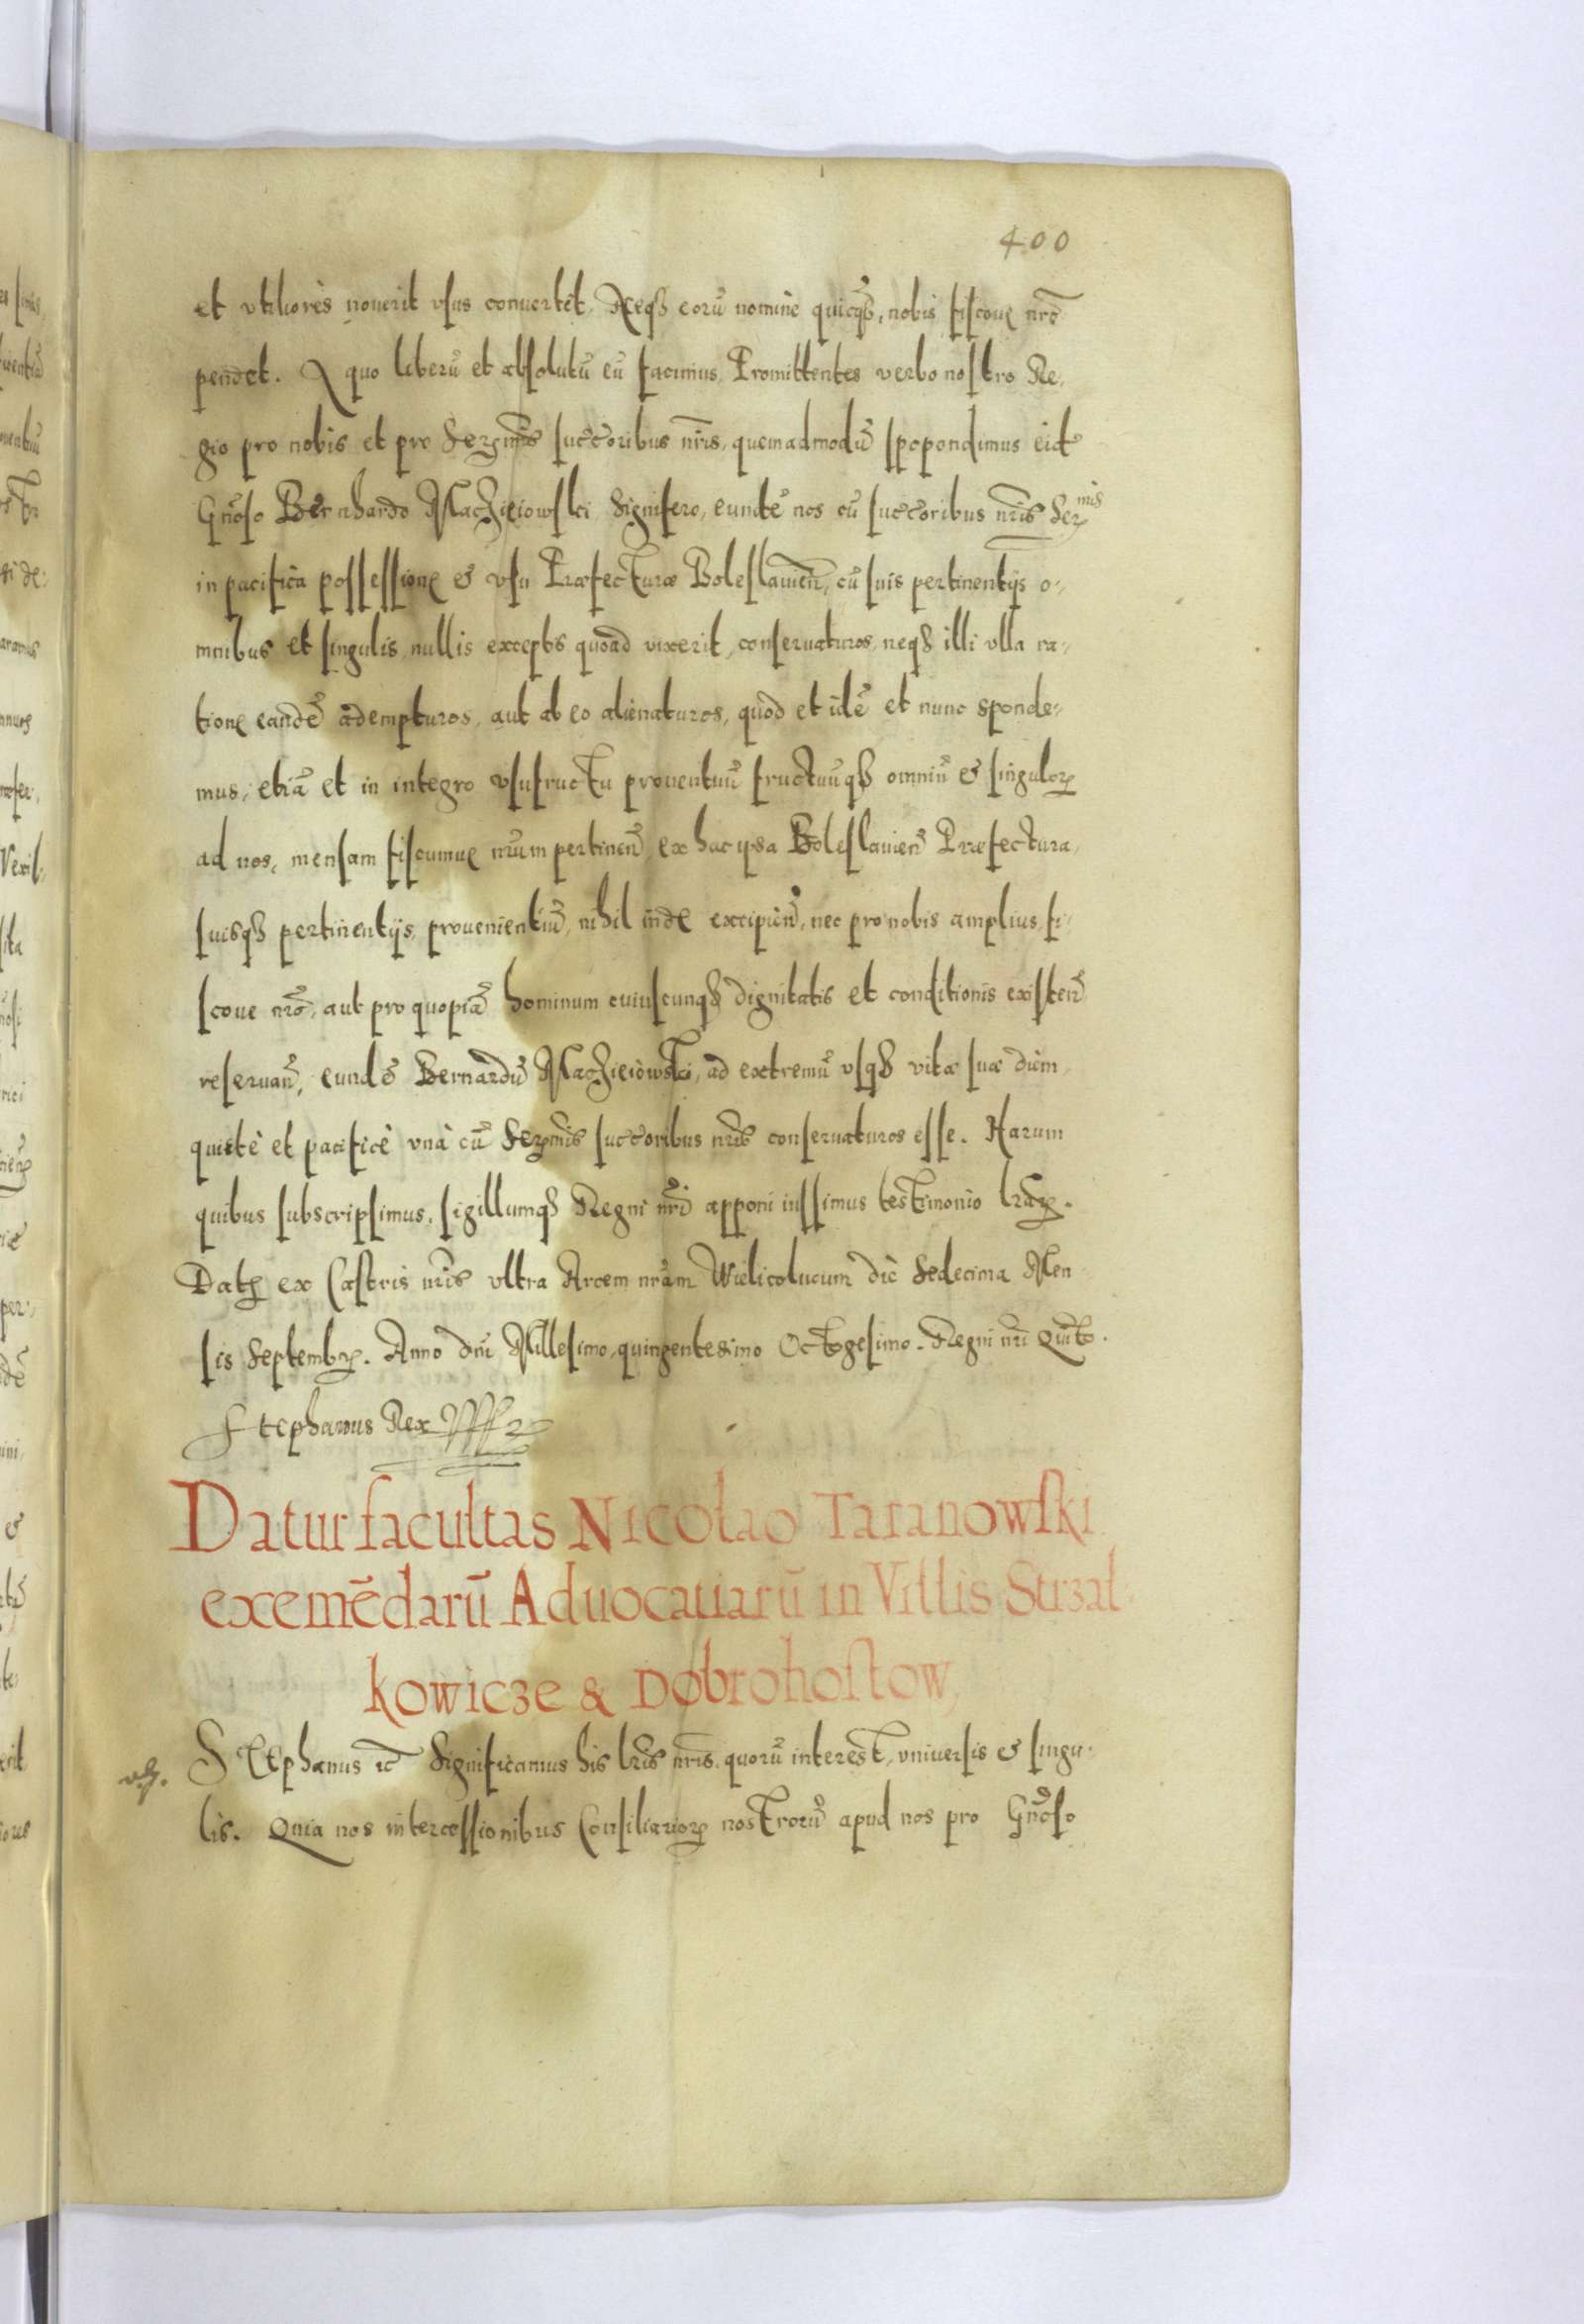 400
et vtiliores nouerit vsus conuertet. Neqꝫ eorũ nomine quicqꝫ, nobis fiscoue nrõ
pendet. A quo liberũ et absolutũ eũ facimus. Promittentes verbo nostro Re-
gio pro nobis et pro Serꝫmis succoribus nris, quemadmodũ spopondimus eidẽ
Gñoso Bernhardo Macziejowski Signifero, eundẽ nos cũ succoribus nris Serꝫmis
in pacifica possessione & vsu Præfecturæ Boleslauieñ, cũ suis pertinentijs o-
mnibus et singulis nullis exceptis quoad vixerit, conseruaturos, neqꝫ illi vlla ra-
tione eandẽ adempturos, aut ab eo alienaturos, quod et idẽ et nunc sponde-
mus, etiã et in integro vsufructu prouentuũ fructuũqꝫ omniũ & singuloꝝ
ad nos, mensam fiscumue nrũm pertineñ, ex hac ipsa Boleslauieñ Præfectura,
suisqꝫ pertinentijs prouenientiũ, nihil inde excipieñ, nec pro nobis amplius fi-
scoue nrõ, aut pro quopiã hominum cuiuscunqꝫ dignitatis et conditionis existeñ
reseruañ, eundẽ Bernardũ Macziejowski, ad extremũ vsqꝫ vitæ suæ diem,
quietè et pacificè vnà cũ Serꝫmis succoribus nris conseruaturos esse. Harum
quibus subscripsimus, sigillumqꝫ Regni nri apponi iussimus testimonio lraꝝ.
Datꝫ ex Castris nris vltra Arcem nrãm Wielicolucum die Sedecima Men
sis Septembꝝ. Anno dni Millesimo quingentesimo Octogesimo. Regni nri Quinto.
Stephanus Rex
Datur facultas Nicolao Taranowski
exemẽdarũ Aduocatiarũ in Villis Strzal-
kowicze & Dobrohostow
Stephanus ic̃ Significamus his lris nris quorũ interest, vniuersis & singu-
lis. Quia nos intercessionibus Consiliarioꝝ nostrorũ apud nos pro Gñoso